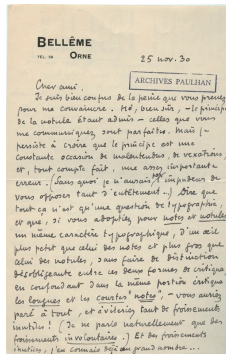 BELLÊME
TEL. 28 ORNE
25 nov. 30
ARCHIVES PAULHAN
Cher ami,
Je suis bien confus de la peine que vous prenez
pour me convaincre. Hé, bien sûr, – le principe
de la notule étant admis – celles que vous
me communiquez sont parfaites. Mais je
persiste à croire que le principe est une
constante occasion de malentendus, de vexations
et, tout compte fait, une assez importante
erreur. (Sans quoi je n'aurais pas l'impudeur de
vous opposer tant d'entêtement..) Dire que
tout ça n'est qu'une question de typographie,
et que, si vous adoptiez pour notes et notules
un même caractère typographique, d'un œil
plus petit que celui des notes et plus gros que
celui des notules, sans faire de distinction
désobligeante entre ces deux formes de critique,
en confondant dans la même portion critique
les longues et les courtes "notes", – vous auriez
paré à tout, et éviteriez tant de froissements
inutiles ! (Je ne parle naturellement que des
froissements involontaires.) Et des froissements
inutiles, j'en connais déjà un grand nombre...